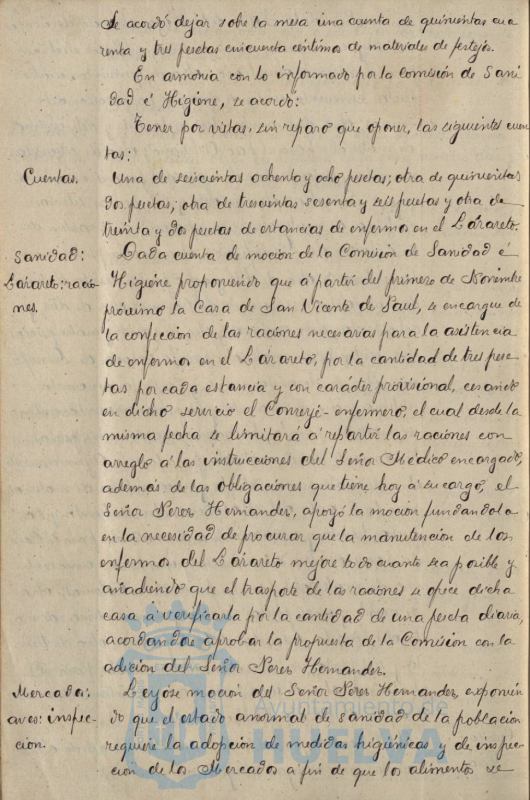 Se acordó dejar sobre la mesa una cuenta de quinientas cua
renta y tres pesetas cincuenta céntimos de materiales de festejos.
En armonía con lo informado por la Comisión de Sani
dad é Higiene, se acordó:
Tener por vistas, sin reparo que oponer, las siguientes cuen
tas:
Cuentas.
Una de seiscientas ochenta y ocho pesetas; otra de quinientas
dos pesetas; otra de trescientas sesenta y seis pesetas y otra de
treinta y dos pesetas de estancias de enfermos en el Lázareto.
Sanidad:
Lázareto: racio
nes.
Dada cuenta de moción de la Comisión de Sanidad é
Higiene proponiendo que á partir del primero de Noviembre
próximo la Casa de San Vicente de Paul, se encargue de
la confección de las raciones necesarias para la asistencia
de enfermos en el Lázareto, por la cantidad de tres pese
tas por cada estancia y con carácter provisional, cesando
en dicho servicio el Conserje-enfermero, el cual desde la
misma fecha se limitará á repartir las raciones con
arreglo á las instrucciones del Señor Médico encargado,
además de las obligaciones que tiene hoy á su cargo, el
Señor Perez Hernandez, apoyó la moción fundandola
en la necesidad de procurar que la manutención de los
enfermos del Lázareto mejore todo cuanto sea posible y
añadiendo que el trasporte de las raciones se ofrece dicha
casa á verificarla por la cantidad de una peseta diaria,
acordandose aprobar la propuesta de la Comisión con la
adición del Señor Perez Hernandez.
Mercados:
aves: inspec-
cion.
Leyóse moción del Señor Perez Hernandez, exponien
do que el estado anormal de sanidad de la población
requiere la adopción de medidas higiénicas y de inspec
cion de los Mercados a fin de que los alimentos se
Ayuntamiento de
HUELVA